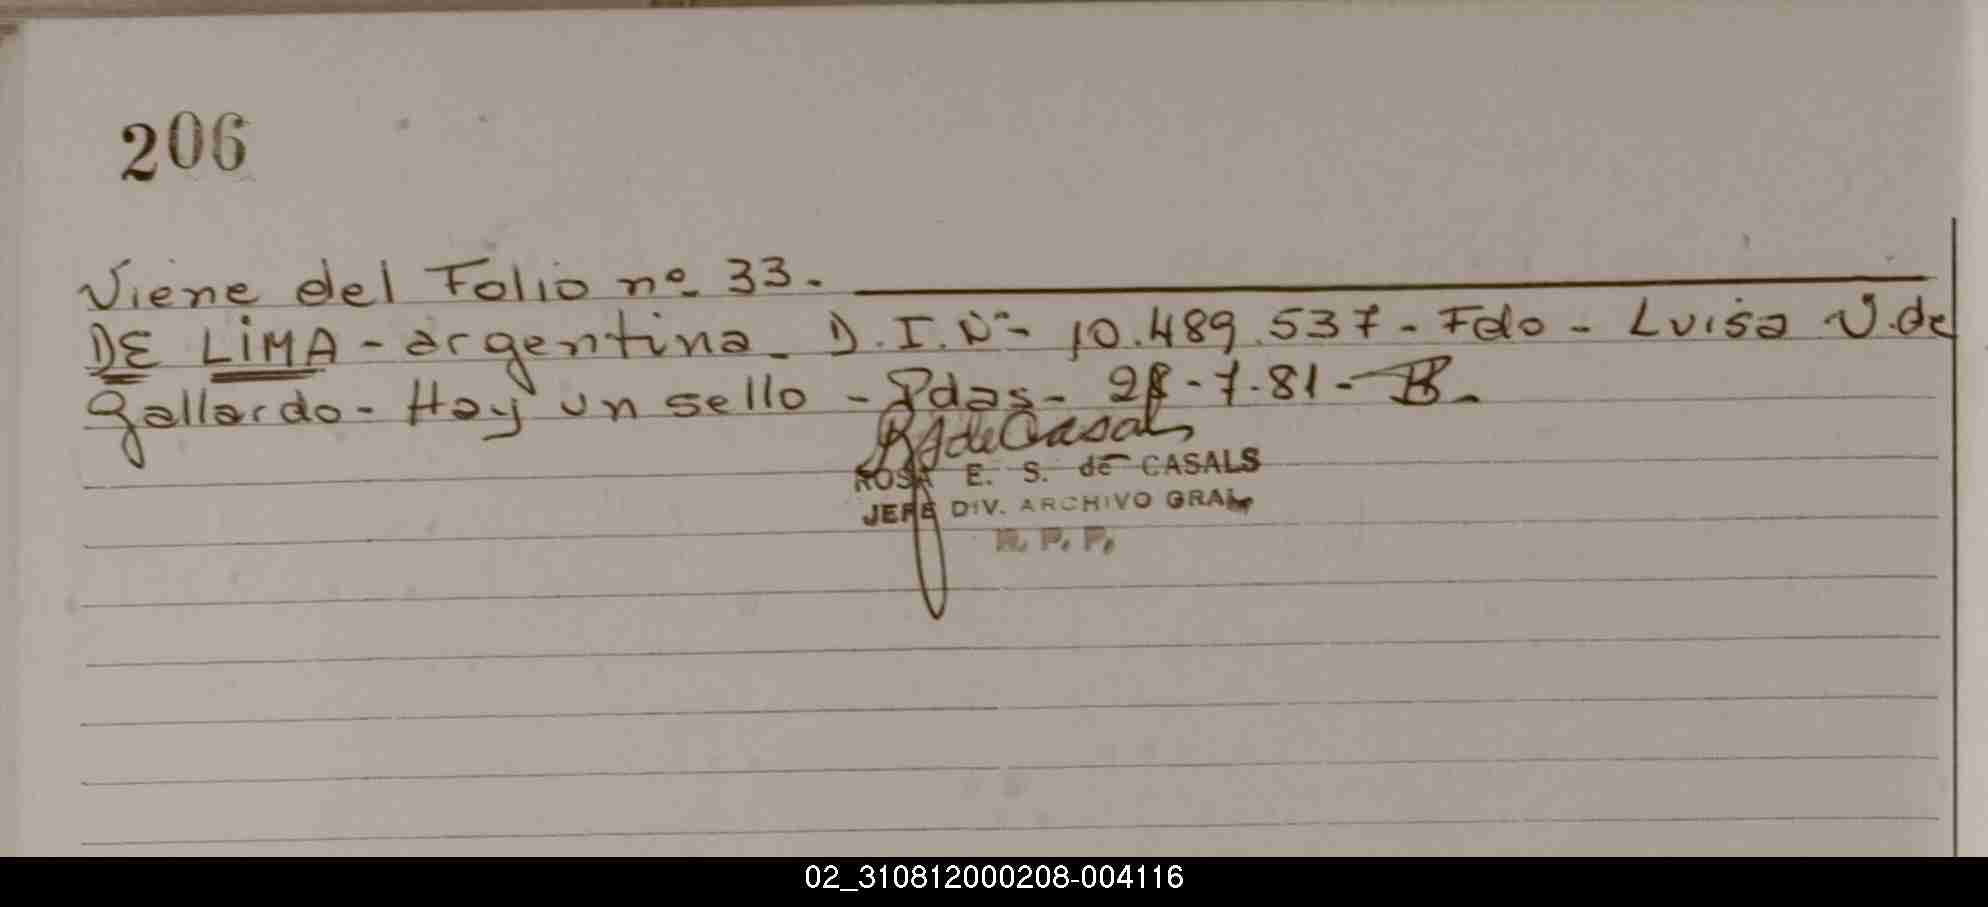 206
Viene del Folio nº 33.
DE LIMA - argentina - D.I.Nº- 10.489.537 - Fdo - Luisa V. de
Gallardo - Hay un sello - Pdas - 28-7-81 - B.
ROSA E. S. de CASALS
JEFE DIV. ARCHIVO GRAL
R. P. P.
02_310812000208-004116